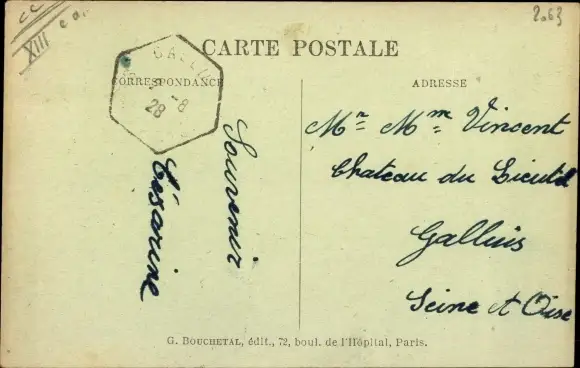 XIII
2.63
CARTE POSTALE
CORRESPONDANCE
ADRESSE
GALLUIS
7-8
28
Souvenir
Césarine
Mr = Mm = Vincent
Chateau du Lieutel
Galluis
Seine et Oise
G. BOUCHETAL, édit., 72, boul. de l'Hôpital, Paris.